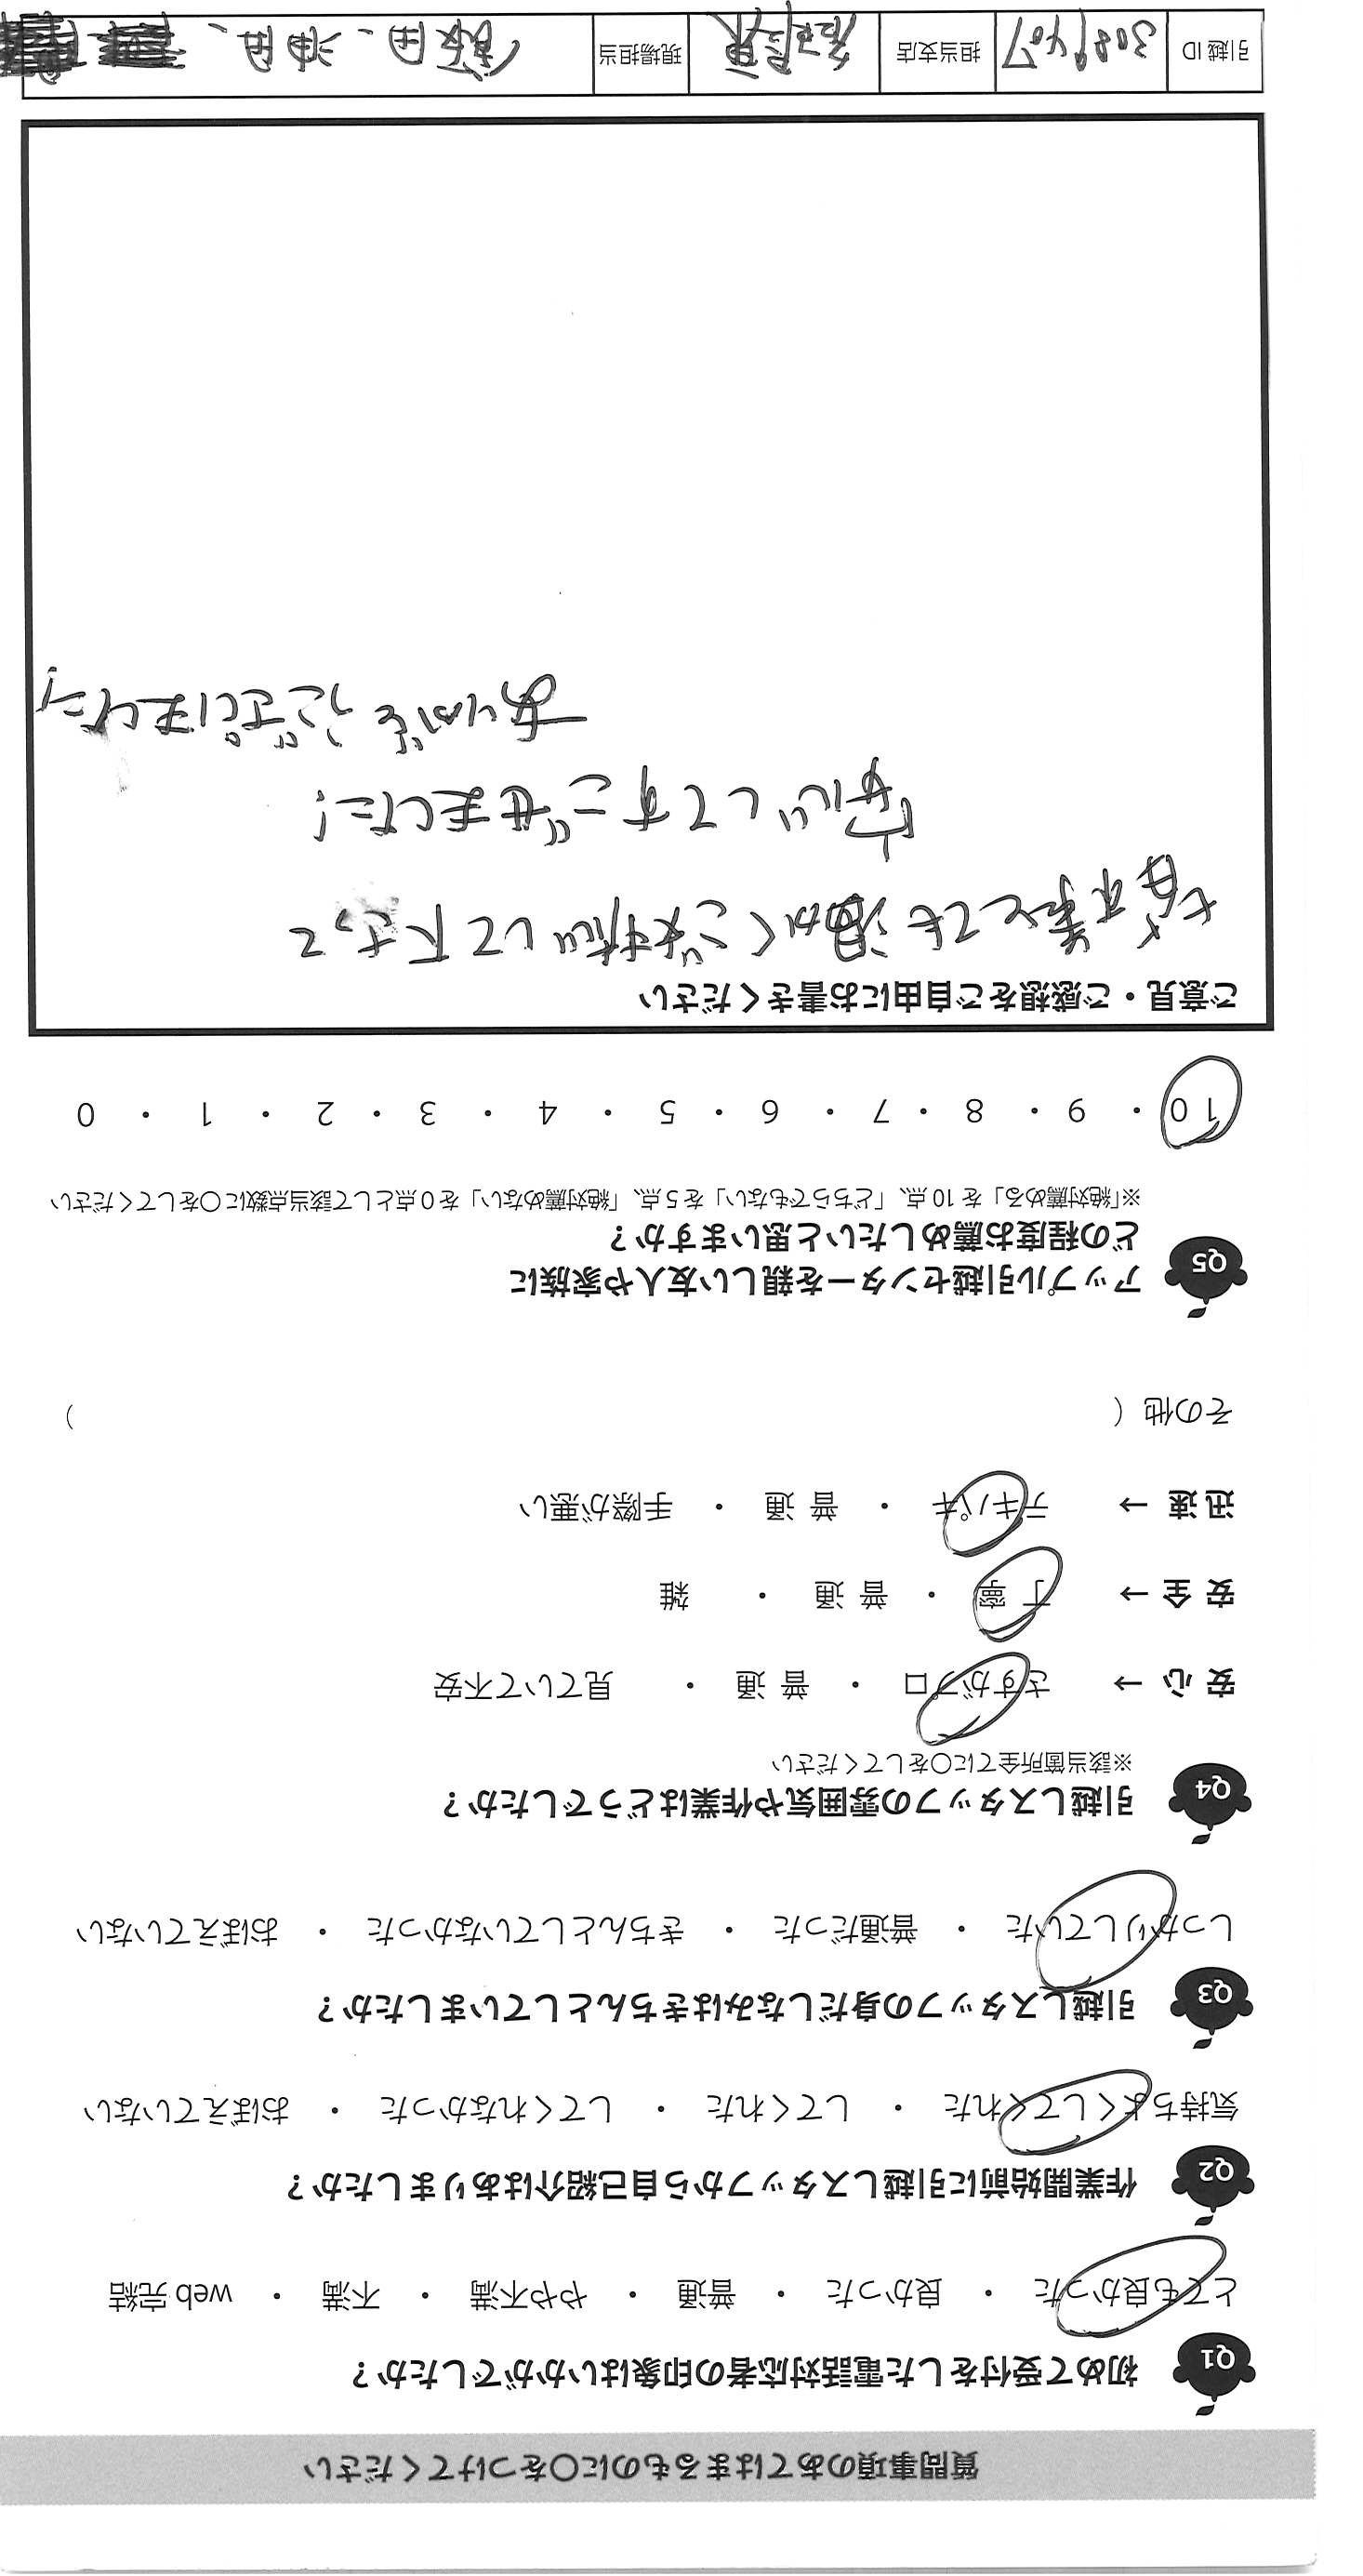 質問事項のあてはまるものに〇をつけてください
Q1 初めて受付をした電話対応者の印象はいかがでしたか？
とても良かった ・ 良かった ・ 普通 ・ やや不満 ・ 不満 ・ web 完結
Q2 作業開始前に引越しスタッフから自己紹介はありましたか？
気持ちよくしてくれた ・ してくれた ・ してくれなかった ・ おぼえていない
Q3 引越しスタッフの身だしなみはきちんとしていましたか？
しっかりしていた ・ 普通だった ・ きちんとしていなかった ・ おぼえていない
Q4 引越しスタッフの雰囲気や作業はどうでしたか？
※該当箇所全てに〇をしてください
安 心 → さすがプロ ・ 普 通 ・ 見ていて不安
安 全 → 丁 寧 ・ 普 通 ・ 雑
迅 速 → テキパキ ・ 普 通 ・ 手際が悪い
その他（ ）
Q5 アップル引越センターを親しい友人や家族に
どの程度お薦めしたいと思いますか？
※「絶対薦める」を 10 点、「どちらでもない」を 5 点、「絶対薦めない」を 0 点として該当点数に〇をしてください
10 ・ 9 ・ 8 ・ 7 ・ 6 ・ 5 ・ 4 ・ 3 ・ 2 ・ 1 ・ 0
ご意見・ご感想をご自由にお書きください
皆さまとても温かく して下さって
安心してすごせました！
ありがとうございました！
引越 ID 3089407 担当支店 現場担当 飯田、沖田、